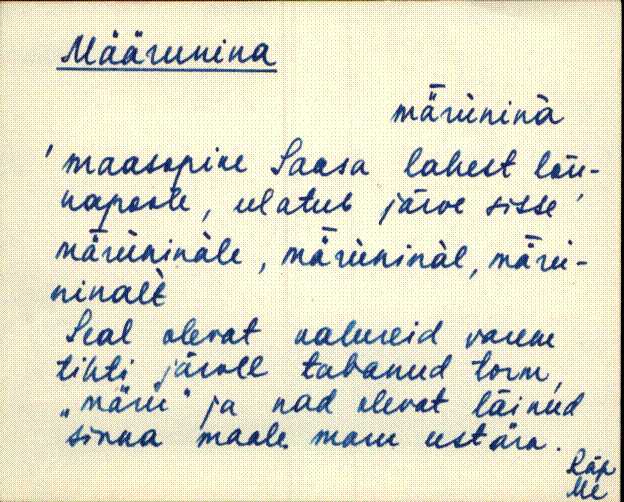 Määrunina
mā̀runinà
' maasopike Saasa lahest lõu-
napoole, ulatub järve sisse '
mā̀runinàle, mā̀runinàl, mā̀ru-
ninalt̀
Seal olevat kalureid varem
tihti järvel tabanud torm,
„mā̀ru" ja nad olevat läinud
sinna maale maru eest ära.
Räp
Me